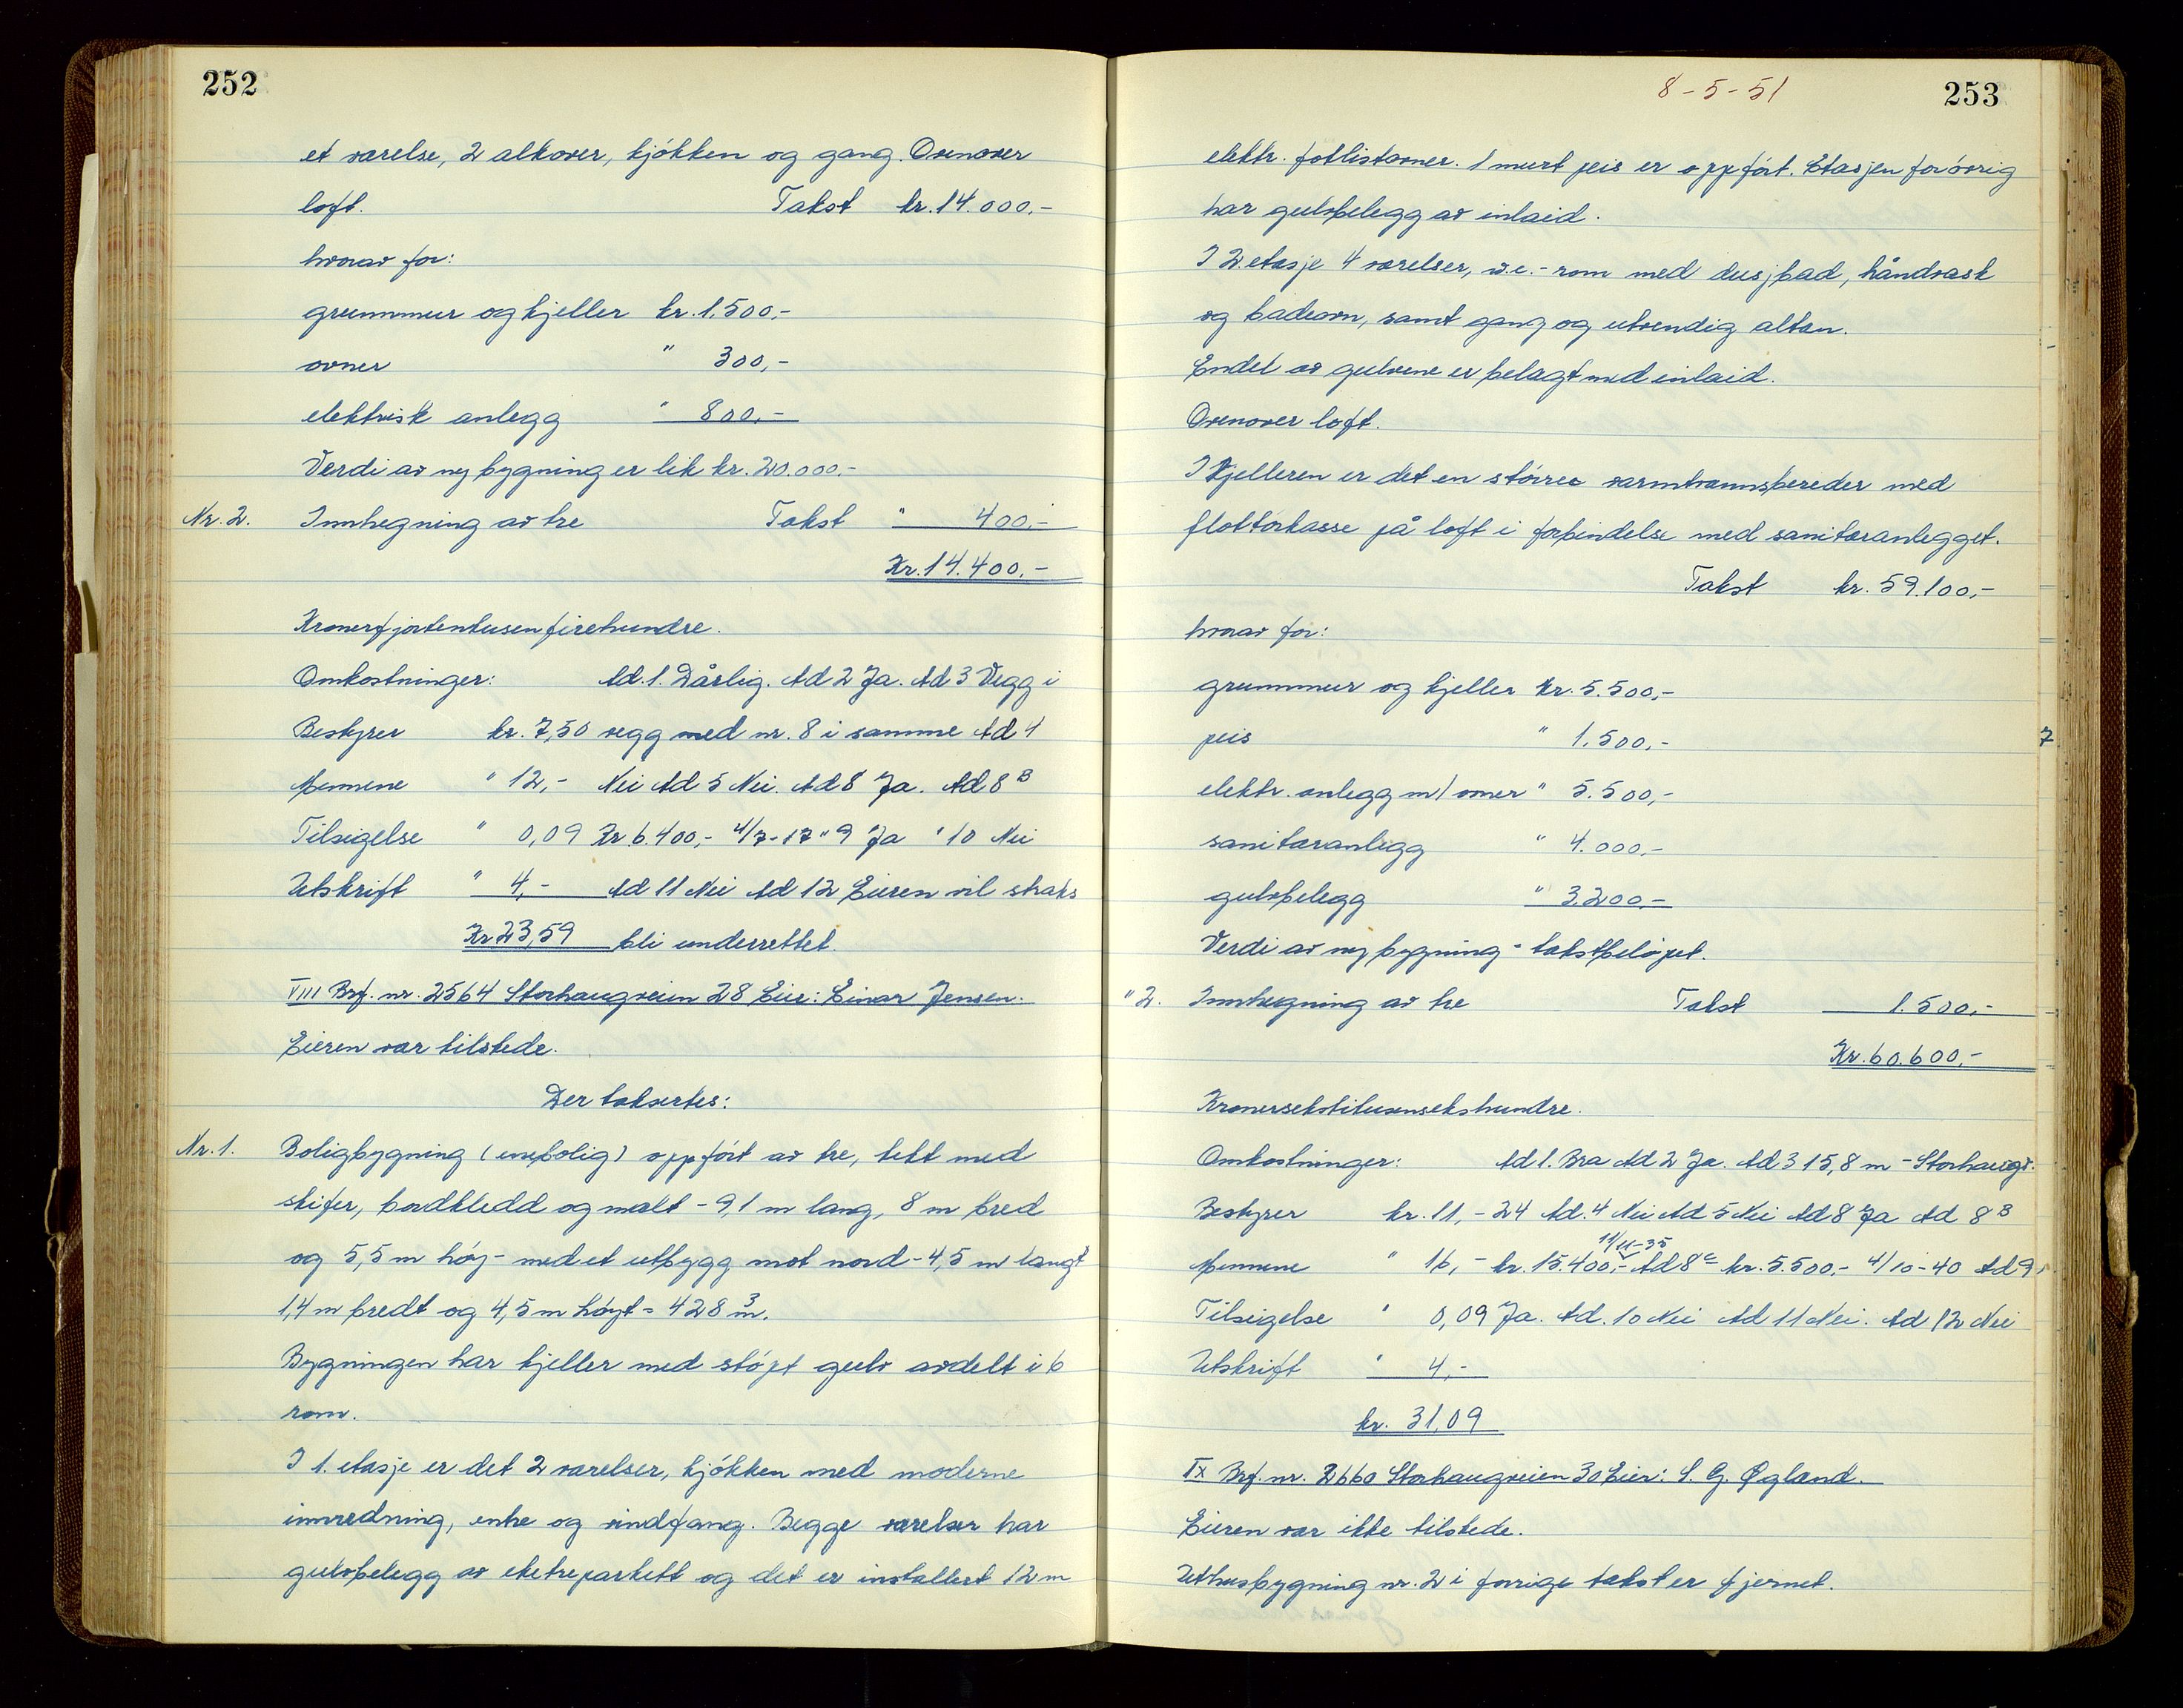 252
et værelse, 2 alkover, kjøkken og gang. Ovenover
loft. Takst kr. 14.000,-
hvorav for:
grunnmur og kjeller kr. 1.500,-
ovner " 300,-
elektrisk anlegg " 800,-
Verdi av ny bygning er lik kr. 20.000.-
Nr. 2. Innhegning av tre Takst " 400,-
Kr. 14.400,-
Kronerfjortentusenfirehundre.
Omkostninger: Ad. 1. Dårlig. Ad 2 Ja. Ad 3 Vegg i
Bestyrer kr. 7,50 vegg med nr. 8 i samme Ad 4
Mennene " 12,- Nei Ad 5 Nei. Ad 8 Ja. Ad 8 B
Tilsigelse " 0,09 Kr 6.400,- 4/7-17 " 9 Ja " 10 Nei
Utskrift " 4,- Ad 11 Nei Ad 12 Eieren vil straks
Kr 23,59 bli underrettet.
VIII Brf. nr. 2564 Storhaugveien 28 Eier: Einar Jensen.
Eieren var tilstede.
Der taksertes:
Nr. 1. Boligbygning (enebolig) oppført av tre, tekt med
skifer, bordkledd og malt - 9,1 m lang, 8 m bred
og 5,5 m høy - med et utbygg mot nord - 4,5 m langt
1,4 m bredt og 4,5 m høyt = 428 m³.
Bygningen har kjeller med støpt gulv avdelt i 6
rom.
I 1. etasje er det 2 værelser, kjøkken med moderne
innredning, entre og vindfang. Begge værelser har
gulvbelegg av eketreparkett og det er installert 12 m
8-5-51
253
elektr. fotlistovner. 1 murt peis er oppført. Etasjen forøvrig
har gulvbelegg av inlaid.
I 2. etasje 4 værelser, w.c.-rom med dusjbad, håndvask
og badeovn, samt gang og utvendig altan.
Endel av gulvene er belagt med inlaid.
Ovenover loft.
I kjelleren er det en større varmtvannsbereder med
flottørkasse på loft i forbindelse med sanitæranlegget.
Takst kr. 59.100,-
hvorav for:
grunnmur og kjeller kr. 5.500,-
peis " 1.500,-
7
elektr. anlegg m/ovner " 5.500,-
sanitæranlegg " 4.000,-
gulvbelegg " 3.200,-
Verdi av ny bygning = takstbeløpet.
" 2. Innhegning av tre Takst 1.500,-
Kr. 60.600,-
Kronersekstitusensekshundre.
Omkostninger: Ad 1. Bra Ad 2 Ja. Ad 3 15,8 m - Storhaugv.
Bestyrer kr. 11,- 24 Ad. 4 Nei Ad 5 Nei Ad 8 Ja Ad 8 B
11/11-35
Mennene " 16,- kr. 15.400,- Ad 8 c kr. 5.500,- 4/10-40 Ad 9
Tilsigelse " 0,09 Ja. Ad. 10 Nei Ad 11 Nei. Ad 12 Nei
Utskrift " 4,-
kr. 31,09
IX Brf. nr. 2660 Storhaugveien 30 Eier: S. G. Øgland.
Eieren var ikke tilstede.
Uthusbygning nr. 2 i forrige takst er fjernet.